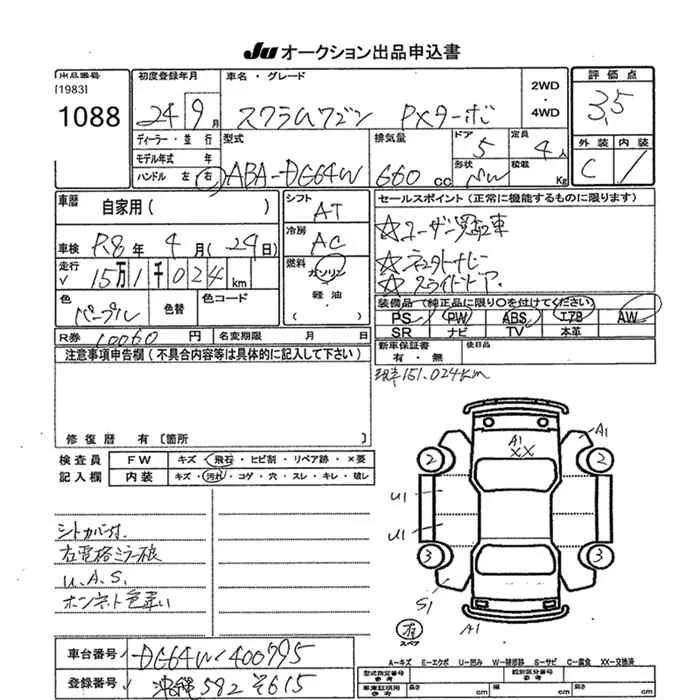 JU オークション出品申込書
出品番号
[1983]
1088
初度登録年月
24 9月
車名・グレード
スクラムワゴン PXターボ
2WD
・
4WD
評価点
3.5
ディーラー・並行
モデル年式 年
ハンドル 左 右
型式
ABA-DG64W
排気量
660 cc
ドア
5
形状
バン
定員
4人
積載
Kg
外装 内装
C
車歴
自家用( )
車検 R8年 4月(24日)
走行 15万1千024km
色
パープル
色替
色コード
シフト
AT
冷房
AC
燃料
ガソリン
・
軽油
・
セールスポイント(正常に機能するものに限ります)
☆ユーザー買取車
☆ナビ
☆スライドドア
装備品(純正品に限り○を付けてください)
PS PW ABS エアB AW
SR ナビ TV 本革
R券 10060円
名変期限 月 日
新車保証書
有・無
後日品
注意事項申告欄(不具合内容等は具体的に記入して下さい)
現車151.024km
修復歴 有〔箇所 〕
検査員
記入欄
FW キズ・飛石・ヒビ割・リペア跡・×要
内装 キズ・汚れ・コゲ・穴・スレ・キレ・破レ
シートカバー付
右電格ミラー
U.A.S.
ボンネット色違い
A1
XX
A1
2
2
U1
U1
3
3
S1
A1
有
スペア
A-キズ E-エクボ U-凹み W-補修跡 S-サビ C-腐食 XX-交換済
車台番号
DG64W-400795
登録番号
沖縄582そ615
型式指定番号
参考
類別区分番号
参考
車庫証明用
参考
長さ cm
幅 cm
高さ cm